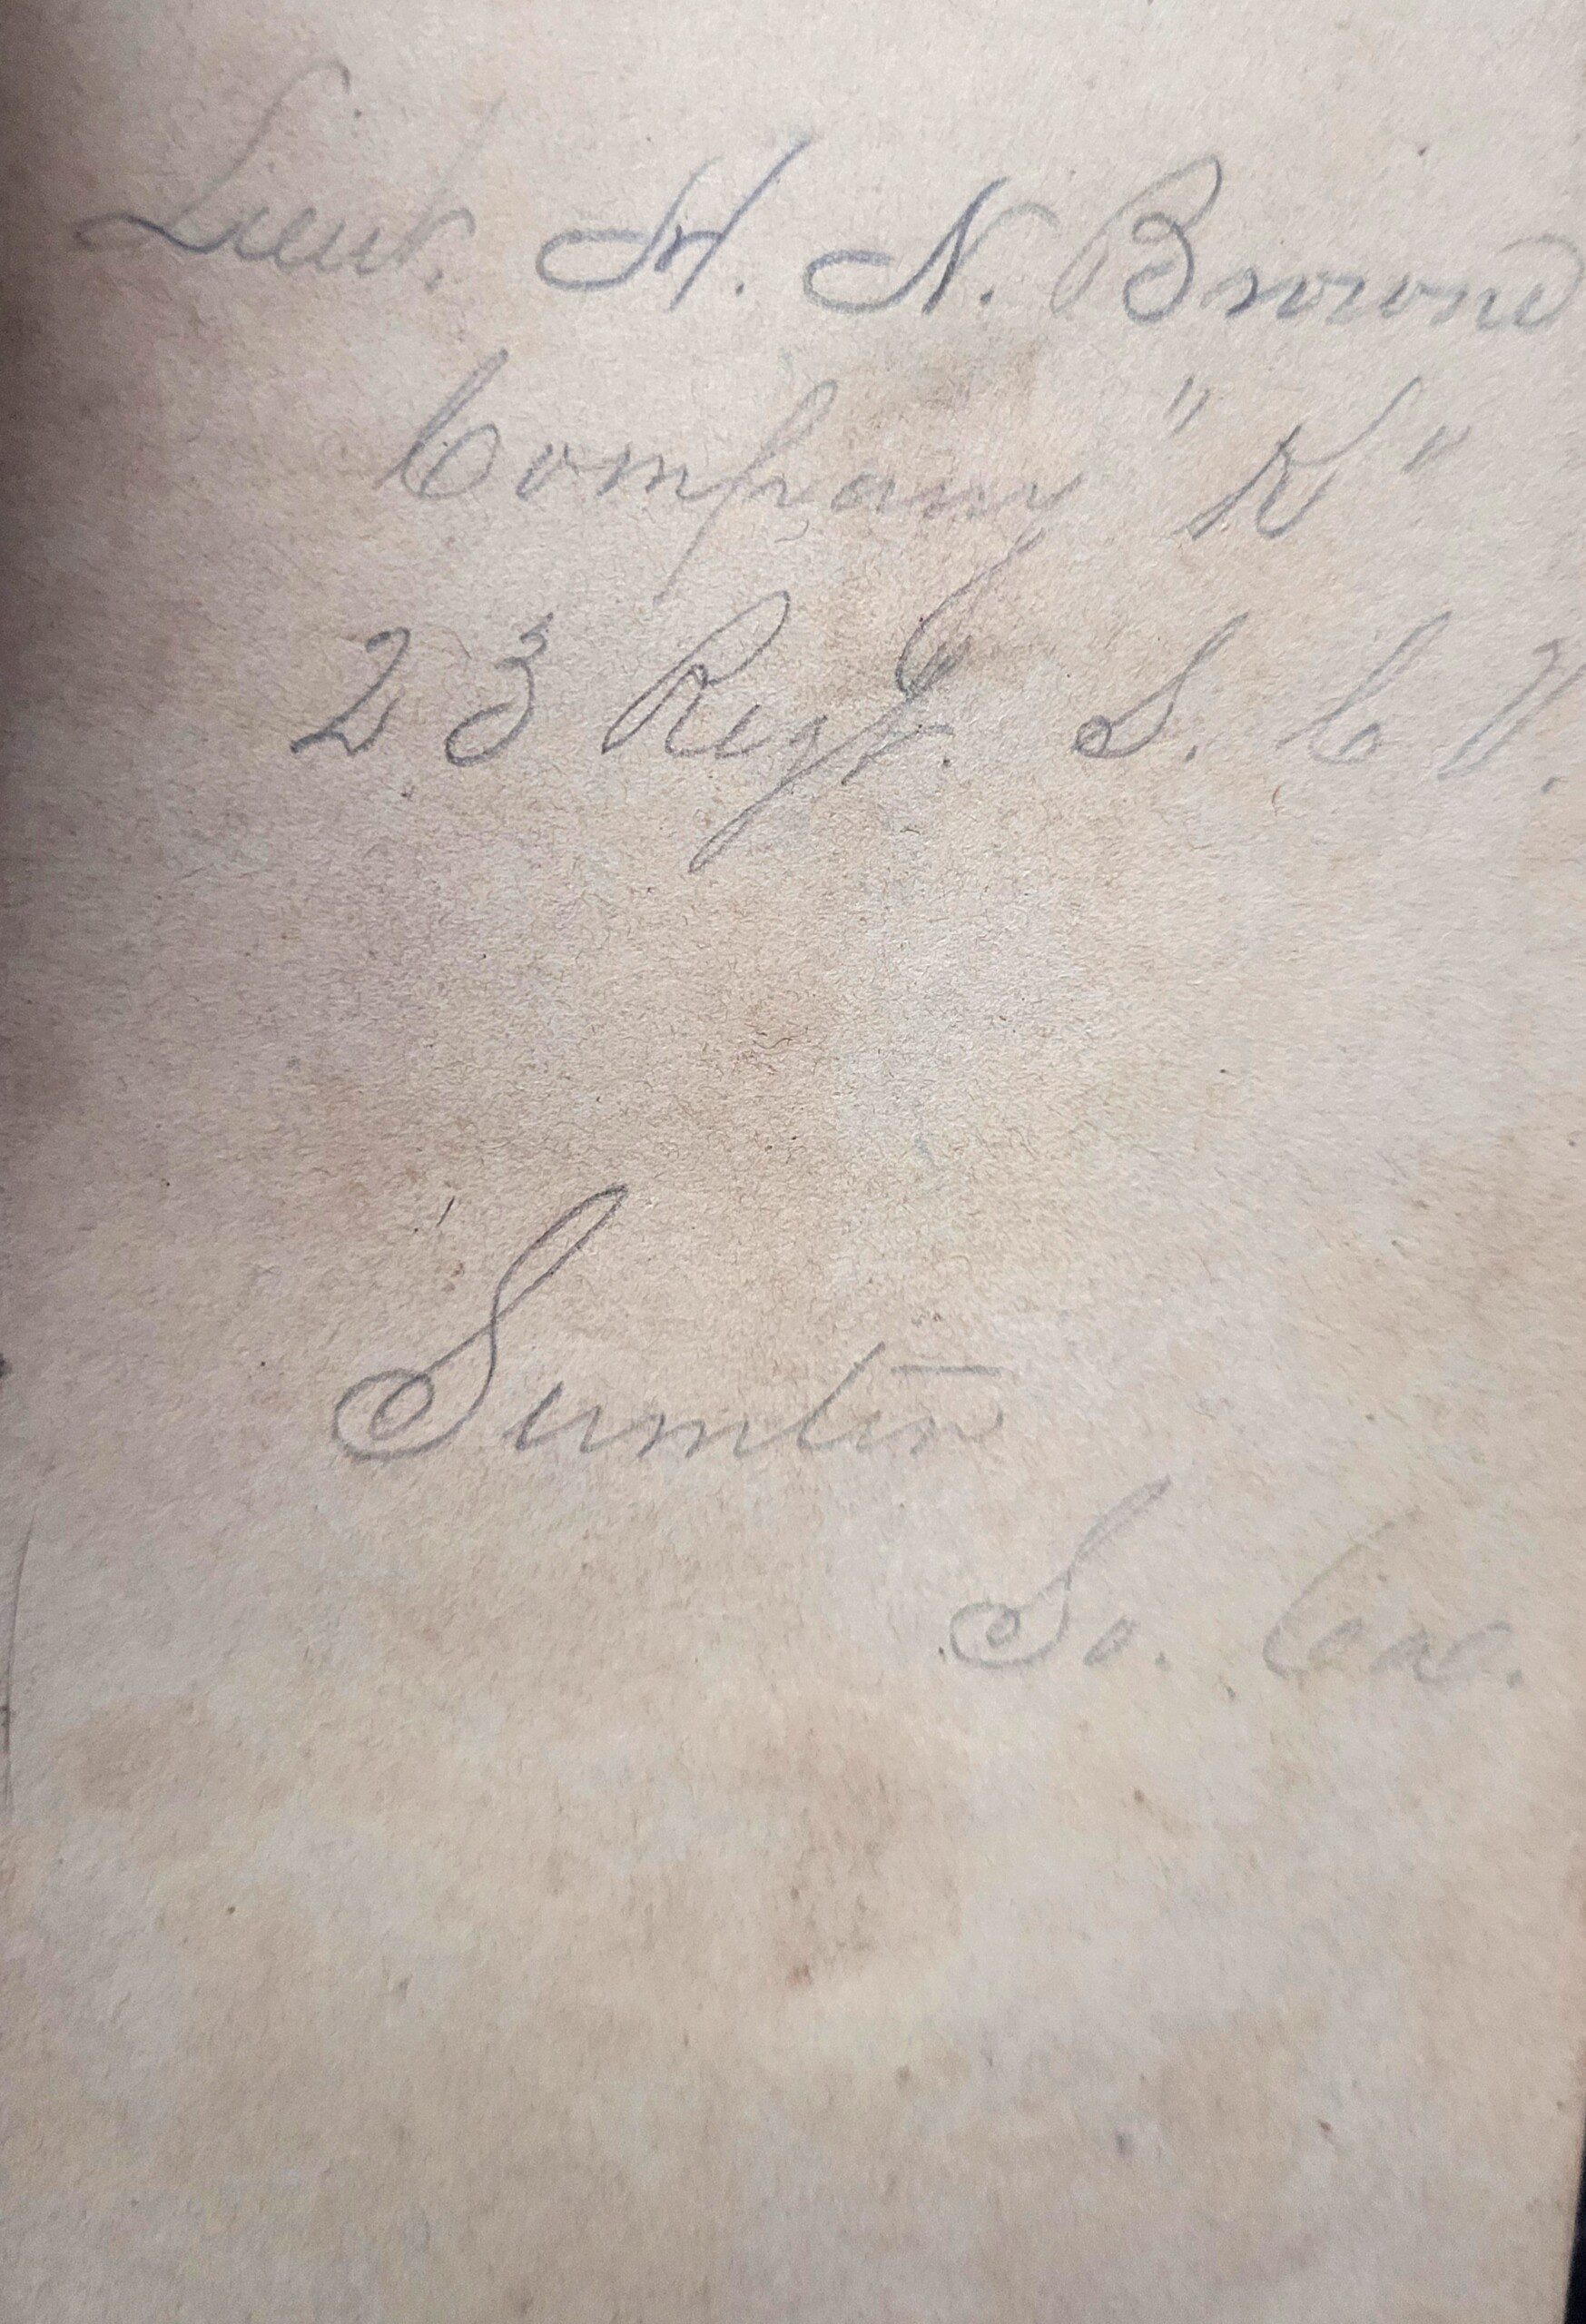 Lieut. H. N. Brown
Company "K"
23 Regt. S. C V.
Sumter
So. Car.